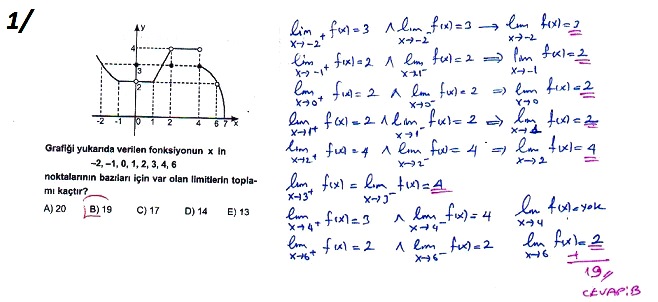 1/
y
4
3
2
-2 -1 0 1 2 3 4 6 7 x
Grafiği yukarıda verilen fonksiyonun x in
–2, –1, 0, 1, 2, 3, 4, 6
noktalarının bazıları için var olan limitlerin topla-
mı kaçtır?
A) 20 B) 19 C) 17 D) 14 E) 13
lim x→-2⁺ f(x)=3 ∧ lim x→-2⁻ f(x)=3 → lim x→-2 f(x)=3
lim x→-1⁺ f(x)=2 ∧ lim x→-1⁻ f(x)=2 ⇒ lim x→-1 f(x)=2
lim x→0⁺ f(x)=2 ∧ lim x→0⁻ f(x)=2 ⇒ lim x→0 f(x)=2
lim x→1⁺ f(x)=2 ∧ lim x→1⁻ f(x)=2 ⇒ lim x→1 f(x)=2
lim x→2⁺ f(x)=4 ∧ lim x→2⁻ f(x)=4 ⇒ lim x→2 f(x)=4
lim x→3⁺ f(x)=lim x→3⁻ f(x)=4
lim x→4⁺ f(x)=3 ∧ lim x→4⁻ f(x)=4 lim x→4 f(x)=yok
lim x→6⁺ f(x)=2 ∧ lim x→6⁻ f(x)=2 lim x→6 f(x)=2
+
19//
CEVAP:B